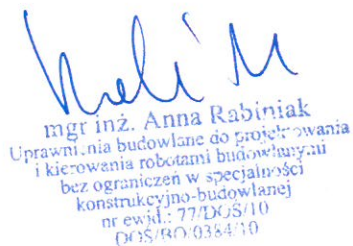 mgr inż. Anna Rabiniak
Uprawnienia budowlane do projektowania
i kierowania robotami budowlanymi
bez ograniczeń w specjalności
konstrukcyjno-budowlanej
nr ewid.: 77/DOŚ/10
DOŚ/BO/0384/10